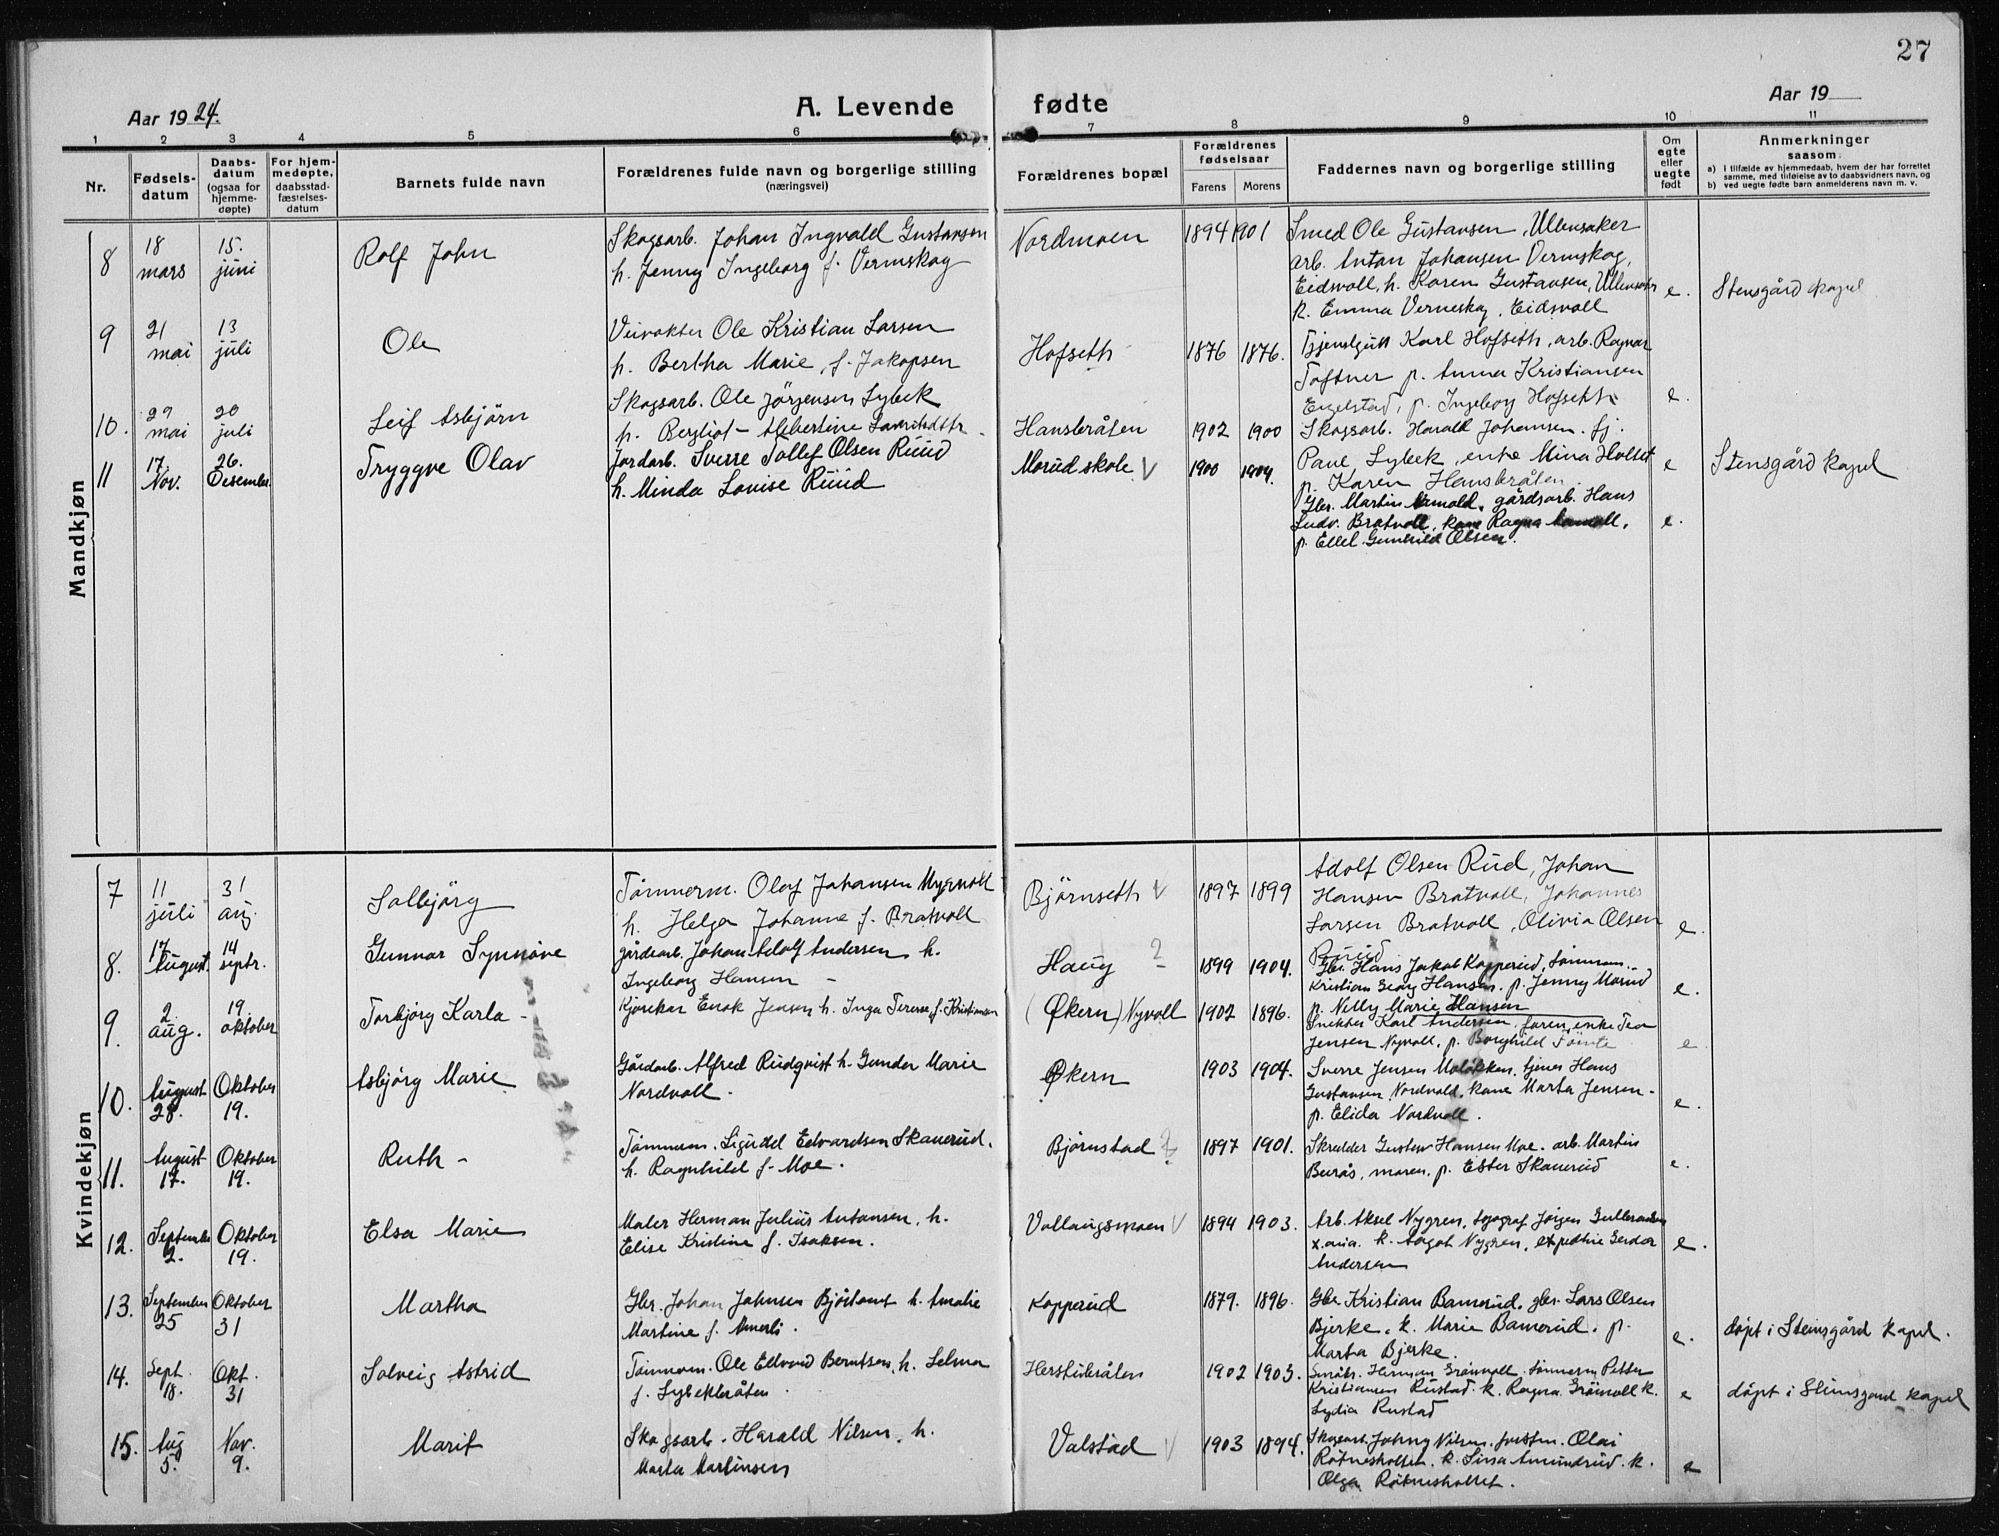 27
Aar 1924.
A. Levende fødte
Aar 19
1 2 3 4 5 6 7 8 9 10 11
Nr.
Fødsels-
datum
Daabs-
datum
(ogsaa for
hjemme-
døpte)
For hjem-
medøpte,
daabsstad-
fæstelses-
datum
Barnets fulde navn
Forældrenes fulde navn og borgerlige stilling
(næringsvei)
Forældrenes bopæl
Forældrenes
fødselsaar
Farens Morens
Faddernes navn og borgerlige stilling
Om
egte
eller
uegte
født
Anmerkninger
saasom:
a) I tilfælde av hjemmedaab, hvem der har forrettet
samme, med tilføielse av to daabsvidners navn, og
b) ved uegte fødte barn anmelderens navn m. v.
Mandkjøn
8
18
mars
15.
juni
Rolf John
Skogsarb. Johan Ingvald Gustavsen
h. Jenny Ingeborg f. Vermskog
Nordmoen
1894 1901
Smed Ole Gustavsen, Ullensaker
arb. Anton Johansen Vermskog,
Eidsvoll, h. Karen Gustavsen, Ullensaker
k. Emma Verneskog, Eidsvoll
e.
Stensgård kapel
9
21
mai
13
juli
Ole
Veivokter Ole Kristian Larsen
h. Bertha Marie, f. Jakopsen
Hofseth
1876 1876.
Tjenstgutt Karl Hofseth, arb. Ragnar
Toftner p. Anna Kristiansen
Engelstad, p. Ingeborg Hofseth
e.
10.
29
mai
20
juli
Leif Asbjörn
Skogsarb. Ole Jörgensen Lybek
p. Bergliot - Albertine
Hansbråten
1902 1900
Skogsarb. Harald Johansen. fj.
Paul Lybek, enke Mina Holset
p. Karen Hansbråten
e
11
17.
Nov.
26.
Desember
Tryggve Olav
Jordarb. Sverre Tollef Olsen Ruud
h. Minda Lovise Ruud
Morud skole V
1900 1904.
Gbr. Martin gårdsarb. Hans
Ludv. Bratvoll, kone Ragna
p. Ellel Gunhild Olsen.
e.
Stensgård kapel
Kvindekjøn
7
11
juli
31
aug.
Solbjörg
Tömmerm. Olaf Johansen Nygvoll
h. Helga Johanne f. Bratvoll
Bjørnseth V
1897 1899
Adolf Olsen Rud, Johan
Hansen Bratvoll, Johannes
Larsen Bratvoll, Olivia Olsen
Ruud
e.
8.
17
August.
14
septr.
Gunvor Synnöve
gårdsarb. Johan Adolf Andersen h.
Ingeborg Hansen -
Haug ?
1899 1904.
Gbr. Hans Jakob Kopperud, tømmerm.
Kristian Georg Hansen, p. Jenny Morud
p. Nelly Marie Hansen
e.
9.
2.
aug.
19.
oktober
Torbjörg Karla -
Kjørekar Enok Jensen h. Inga Terese f. Kristiansen
(Økern) Nyvoll
1902 1896.
Snekker Karl Andersen, faren, enke Tea
Jensen Nyvoll, p. Borghild Tömte
e.
10.
August
28.
Oktober
19.
Asbjørg Marie
Gårdarb. Alfred Rudqvist h. Gunda Marie
Nordvoll.
Økern
1903 1904.
Sverre Jensen Moløkken, tjener Hans
Gustavsen Nordvold, kone Marta Jensen -
p. Elida Nordvoll.
e.
11.
August
17.
Oktober
19.
Ruth -
Tømmerm. Sigurd Edvardsen Skanerud.
h. Ragnhild f. Moe.
Bjørnstad ?
1897 1901.
Skredder Gustav Hansen Moe. arb. Martin
Burås, moren, p. Ester Skanerud
e.
12.
September
2.
Oktober
19.
Elsa Marie
Maler Herman Julius Antonsen, h.
Elise Kristine f. Isaksen.
Vollaugsmoen V
1894 1903.
Arb. Aksel Nygren, typograf Jörgen
k. Aagot Nygren, Gerda
Andersen
e.
13.
September
25
Oktober
31
Martha
Gbr. Johan Johnsen h. Amalie
Martine f.
Kopperud
1879. 1896.
Gbr Kristian Bamerud, gbr. Lars Olsen
Bjerke, k. Marie Bamerud, p.
Marta Bjerke.
e.
døpt i Stensgård kapel.
14.
Sept.
18.
Okt.
31
Solveig Astrid
Tømmerm. Ole Edvard Berntsen, h. Selma
f. Lybekbråten.
Herstubråten
1902 1903.
Småbr. Herman Grönvoll, tömmerm Petter
Kristiansen Rustad, k. Ragna Grönvoll k.
Lydia Rustad
e
døpt i Stensgard kapel
15.
Aug
5.
Nov.
9.
Marit
Skogsarb. Harald Nilsen, h.
Marta Martinsen
Valstad V
1903 1894.
Skogsarb. Johny Nilsen, Olai
k. Lina Amundrud, k.
Olga
e